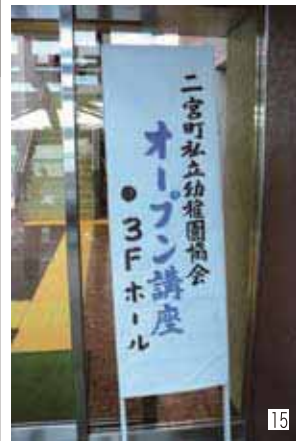 二宮町私立幼稚園協会
オープン講座
●3Fホール
15